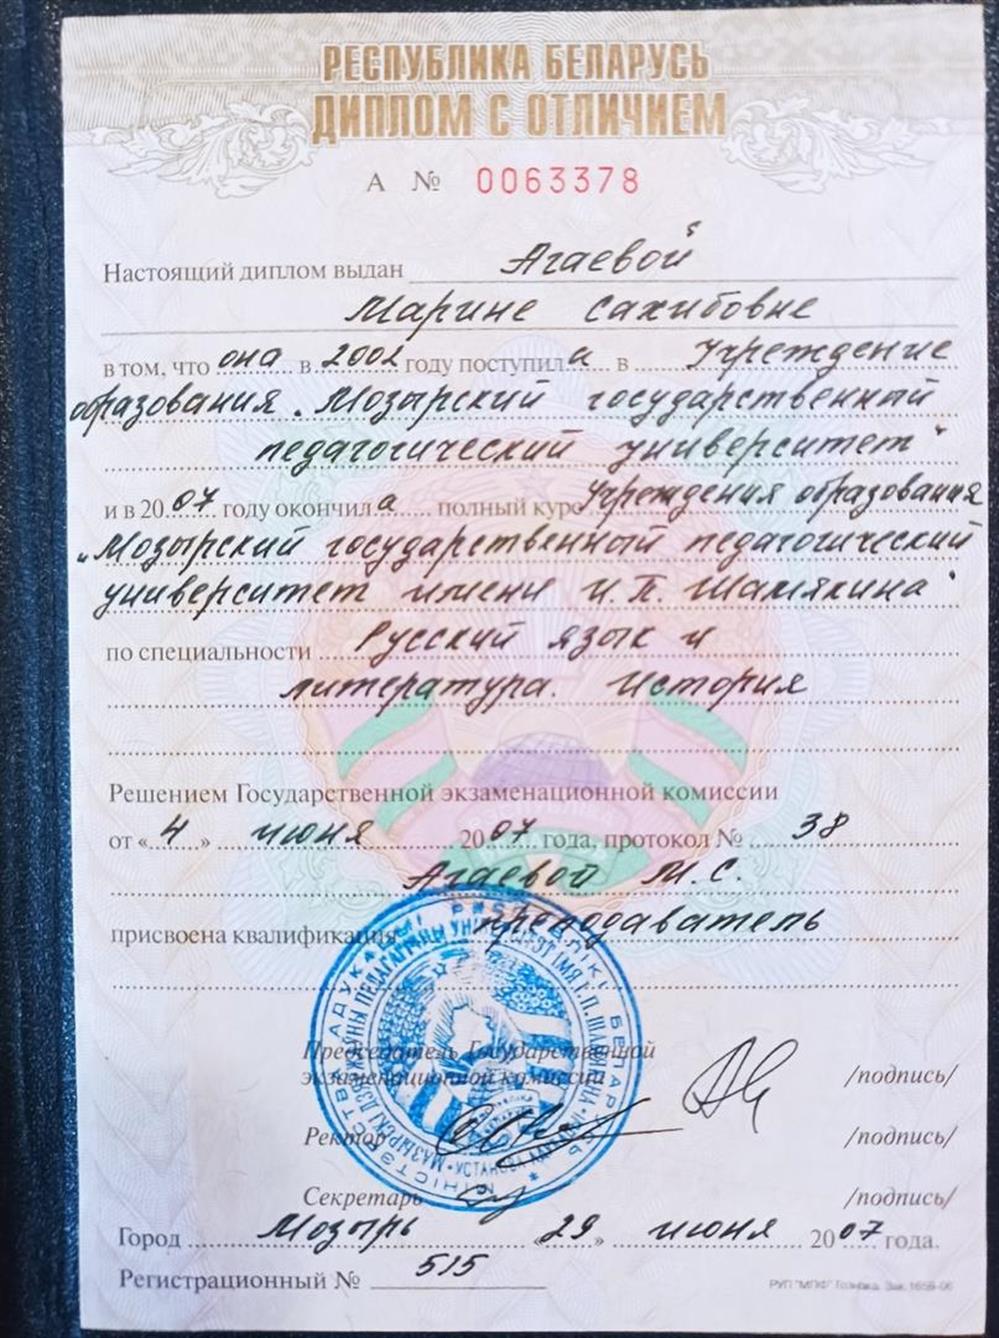 РЕСПУБЛИКА БЕЛАРУСЬ
ДИПЛОМ С ОТЛИЧИЕМ
А № 0063378
Настоящий диплом выдан Агаевой
Марине Сахибовне
в том, что она в 2002 году поступила в Учреждение
образования "Мозырский государственный
педагогический университет"
и в 2007 году окончила полный курс Учреждения образования
"Мозырский государственный педагогический
университет имени И.П. Шамякина"
по специальности Русский язык и
литература. История
Решением Государственной экзаменационной комиссии
от «4» июня 2007 года, протокол № 38
Агаевой М.С.
присвоена квалификация преподаватель
Председатель Государственной
экзаменационной комиссии /подпись/
Ректор /подпись/
Секретарь /подпись/
Город Мозырь «29» июня 2007 года.
Регистрационный № 515
РУП "МПФ" Гознака. Зак. 1659-06